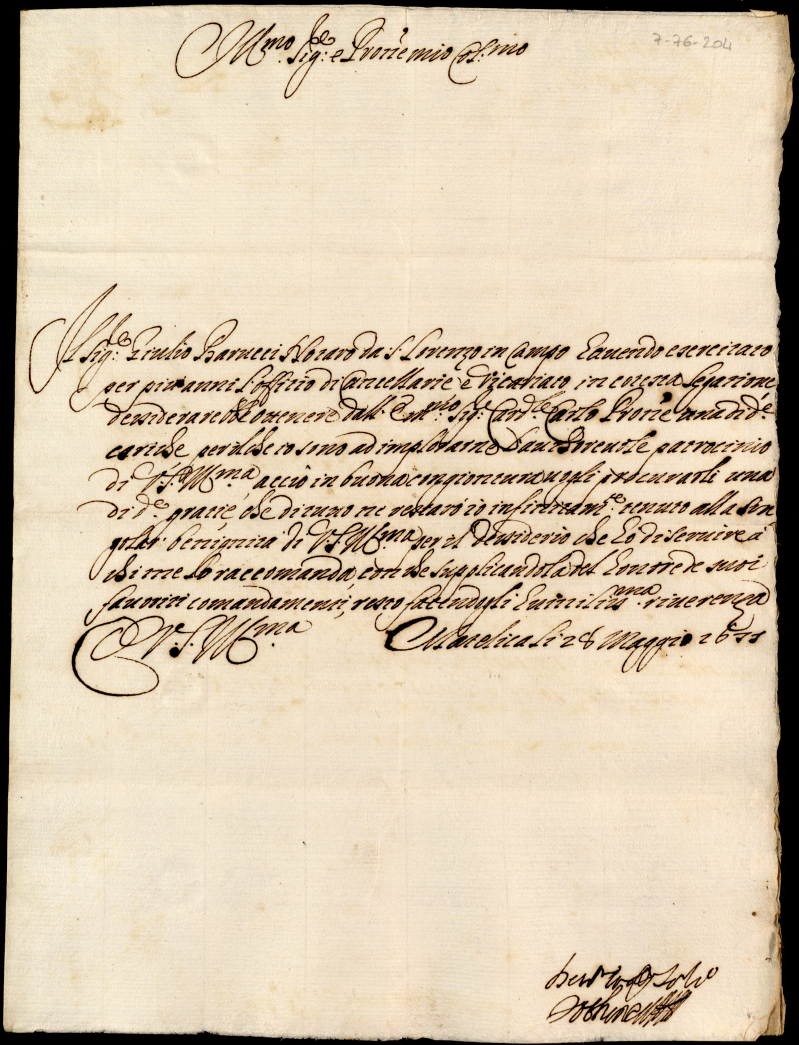 Ill.mo Sig.re e Prone mio Col.mo
7-76-204
Il Sig.re Giulio Barucci Notaro da S. Lorenzo in Campo havendo esercitato
per più anni l'offitio di Cancellarie e Vicariato, in cotesta Legatione
desiderarebbe ottenere dall'Em.mo Sig.r Card.le Carlo Prone una di d.e
cariche per il che io sono ad implorarne l'autorevole patrocinio
di V.S. Ill.ma acciò in buona congiontura vogli procurarli una
di d.e gracie, che di tutto ne restarò io infinitam.te tenuto alla sin
golar benignità di V.S. Ill.ma per il desiderio che hò di servire à
chi me lo raccomanda, con che supplicandola del honore de suoi
favoriti comandamenti, resto facendogli humilis.ma riverenza
D V.S. Ill.ma Matelica li 28 Maggio 1677